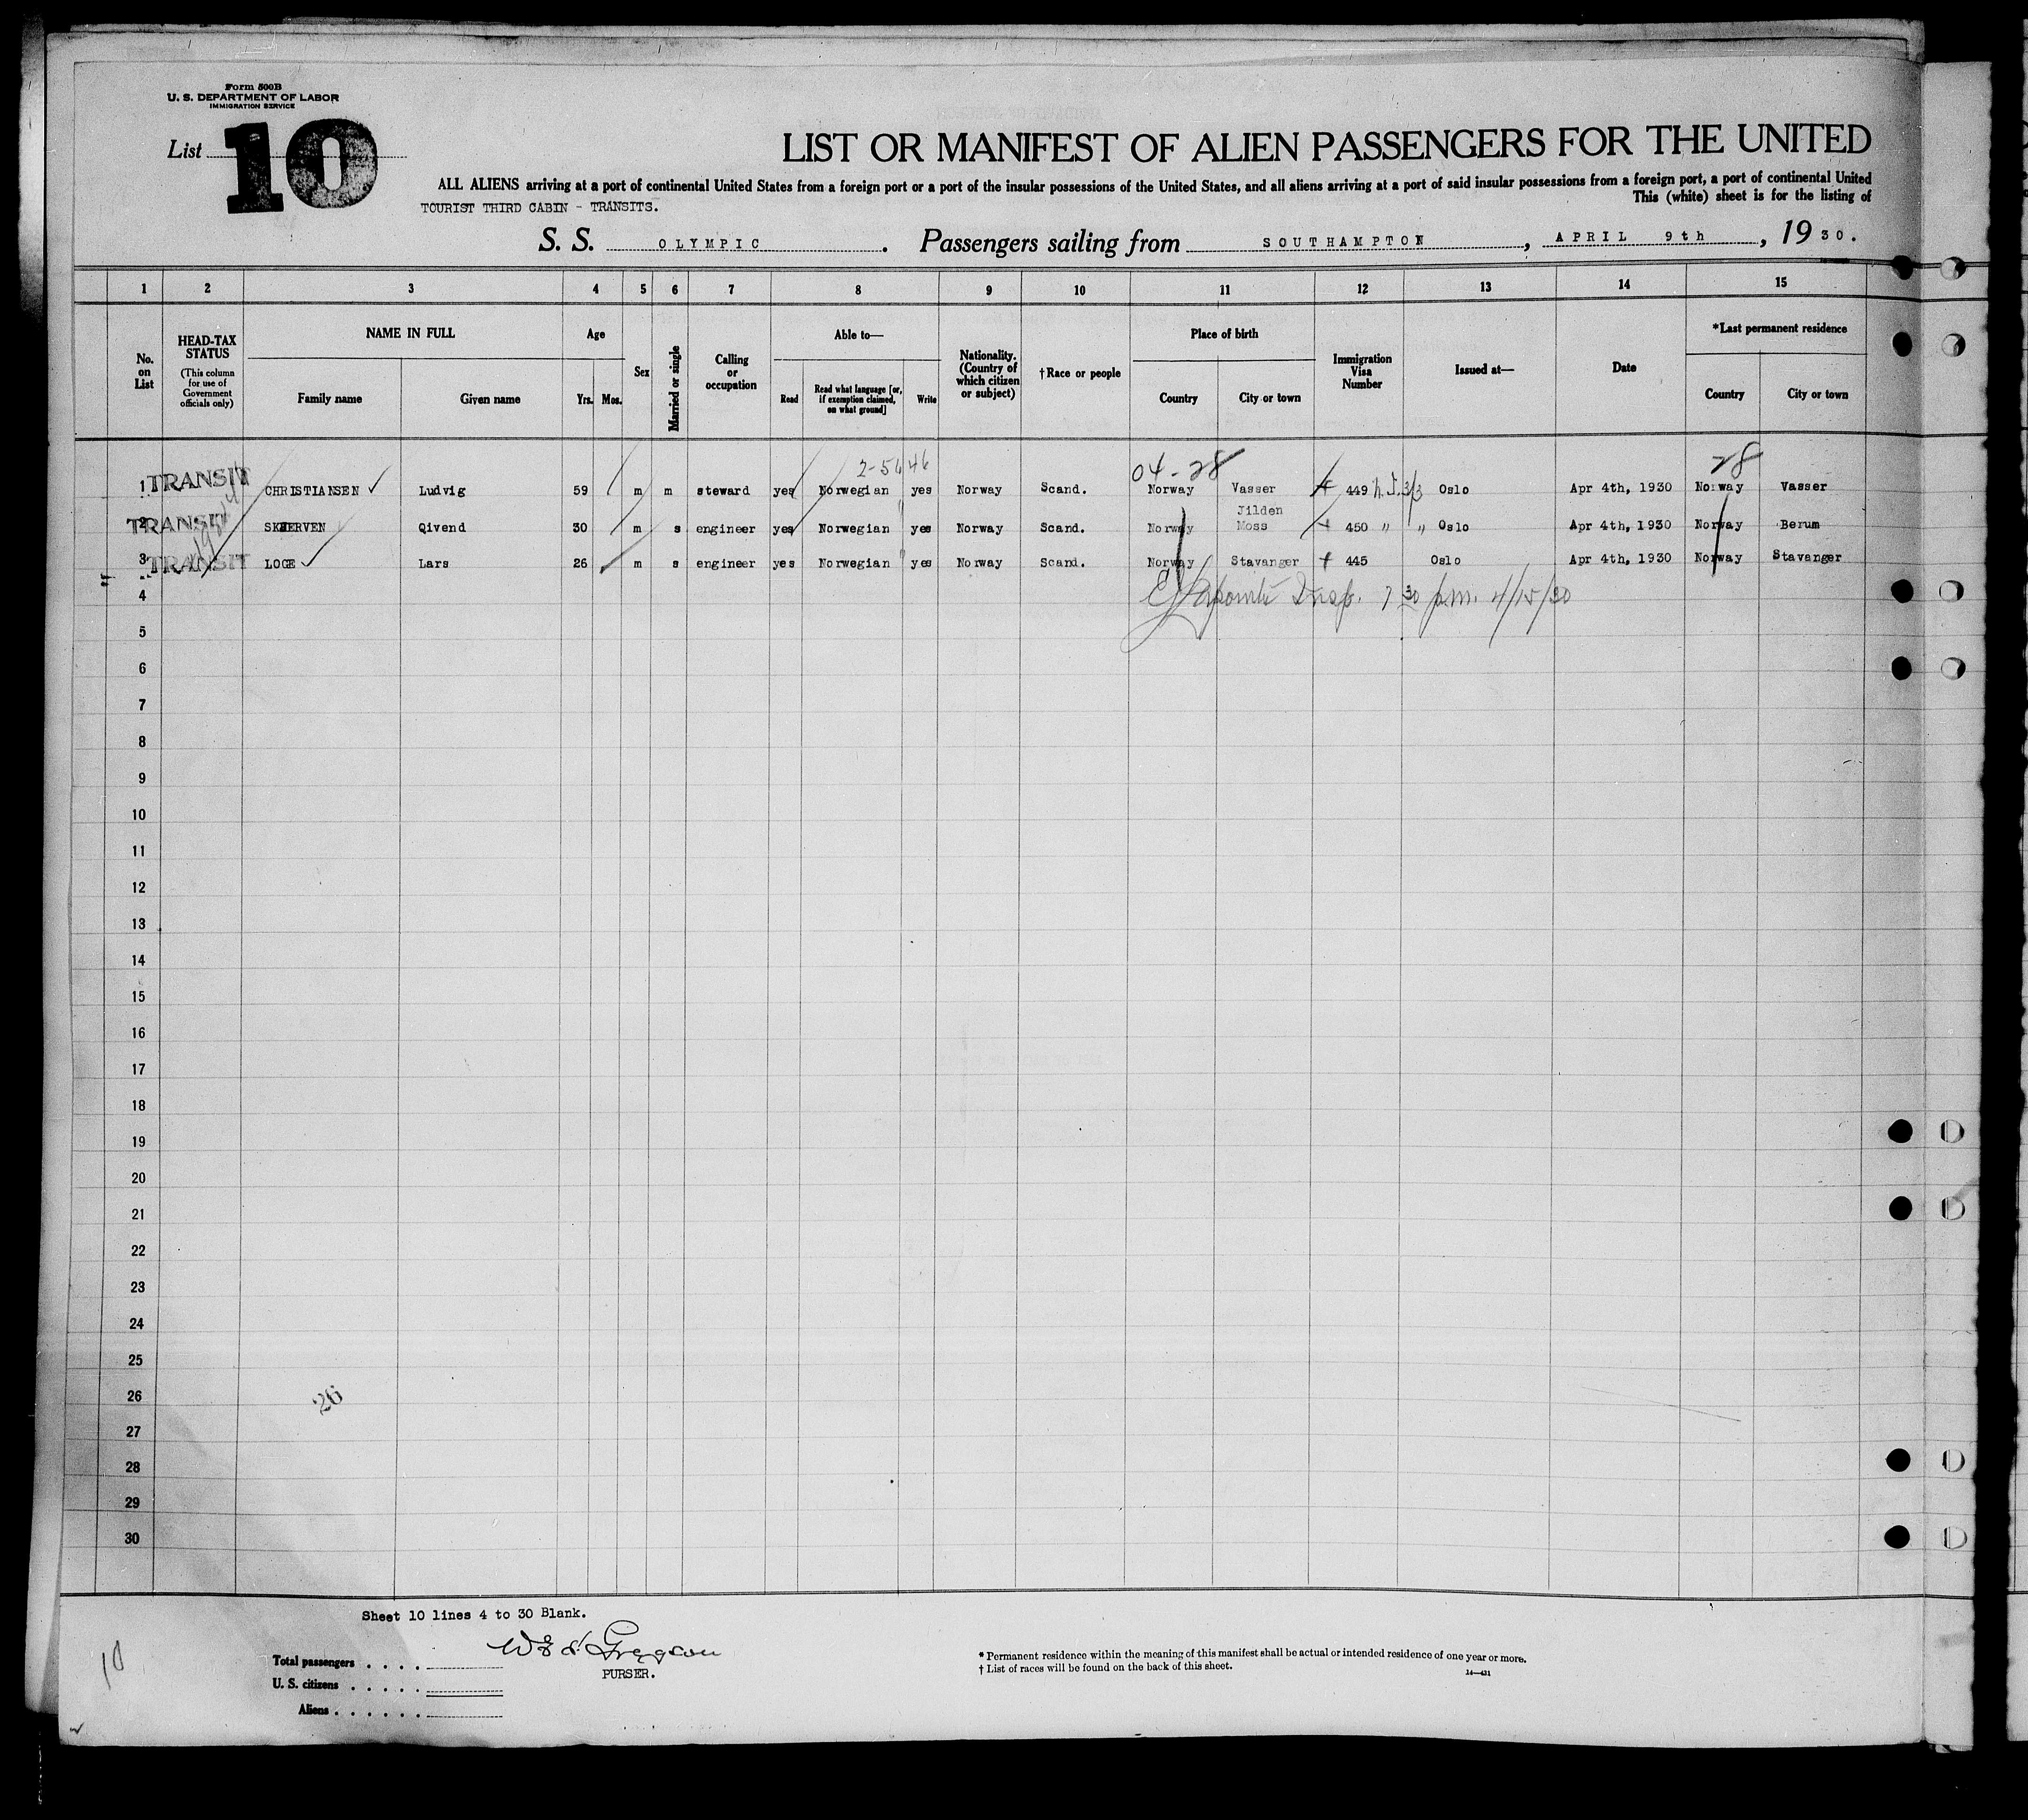 Form 500B
U. S. DEPARTMENT OF LABOR
IMMIGRATION SERVICE
List 10
LIST OR MANIFEST OF ALIEN PASSENGERS FOR THE UNITED
ALL ALIENS arriving at a port of continental United States from a foreign port or a port of the insular possessions of the United States, and all aliens arriving at a port of said insular possessions from a foreign port, a port of continental United
This (white) sheet is for the listing of
TOURIST THIRD CABIN - TRANSITS.
S. S. OLYMPIC. Passengers sailing from SOUTHAMPTON, APRIL 9th, 1930.
1 2 3 4 5 6 7 8 9 10 11 12 13 14 15
No. on List
HEAD-TAX STATUS (This column for use of Government officials only)
NAME IN FULL Family name Given name
Age Yrs. Mos.
Sex
Married or single
Calling or occupation
Able to— Read Read what language [or, if exemption claimed, on what ground] Write
Nationality. (Country of which citizen or subject)
†Race or people
Place of birth Country City or town
Immigration Visa Number
Issued at—
Date
*Last permanent residence Country City or town
2-5646 04-28 28
1 TRANSIT CHRISTIANSEN Ludvig 59 m m steward yes Norwegian yes Norway Scand. Norway Vasser 449 3/3 Oslo Apr 4th, 1930 Norway Vasser
Jilden
2 TRANSIT SKJERVEN Qivend 30 m s engineer yes Norwegian yes Norway Scand. Norway Moss 450 " " Oslo Apr 4th, 1930 Norway Berum
3 TRANSIT LOGE Lars 26 m s engineer yes Norwegian yes Norway Scand. Norway Stavanger 445 Oslo Apr 4th, 1930 Norway Stavanger
4 Lapointe Insp. 7 30 p.m. 4/15/30
5
6
7
8
9
10
11
12
13
14
15
16
17
18
19
20
21
22
23
24
25
26 26
27
28
29
30
Sheet 10 lines 4 to 30 Blank.
10
Total passengers
Greggson
PURSER.
U. S. citizens
Aliens
* Permanent residence within the meaning of this manifest shall be actual or intended residence of one year or more.
† List of races will be found on the back of this sheet.
14—421